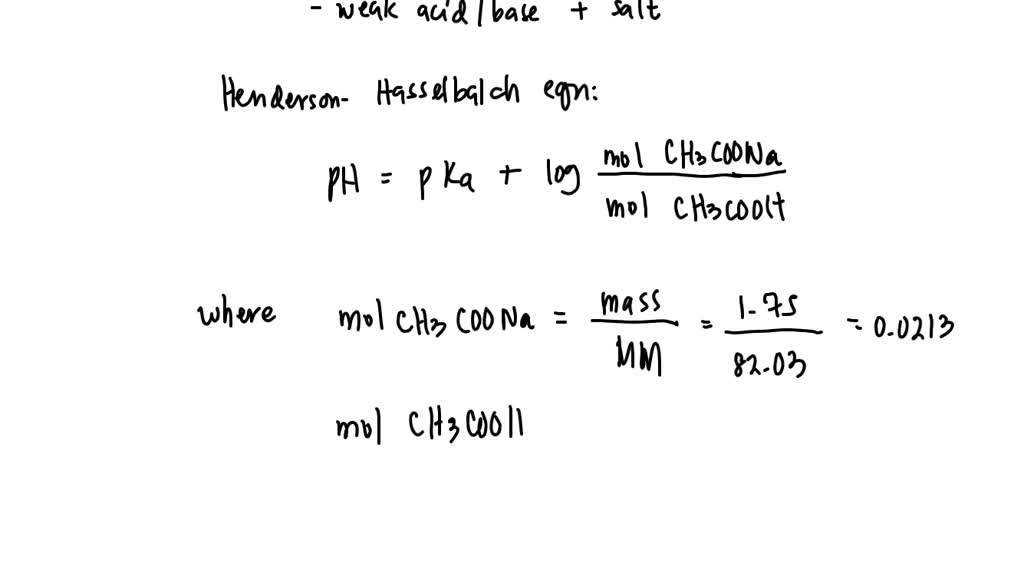 - weak acid/base + salt
Henderson- Hasselbalch eqn:
pH = pKa + log mol CH3COONa / mol CH3COOH
where mol CH3COONa = mass / MM = 1.75 / 82.03 = 0.0213
mol CH3COOH